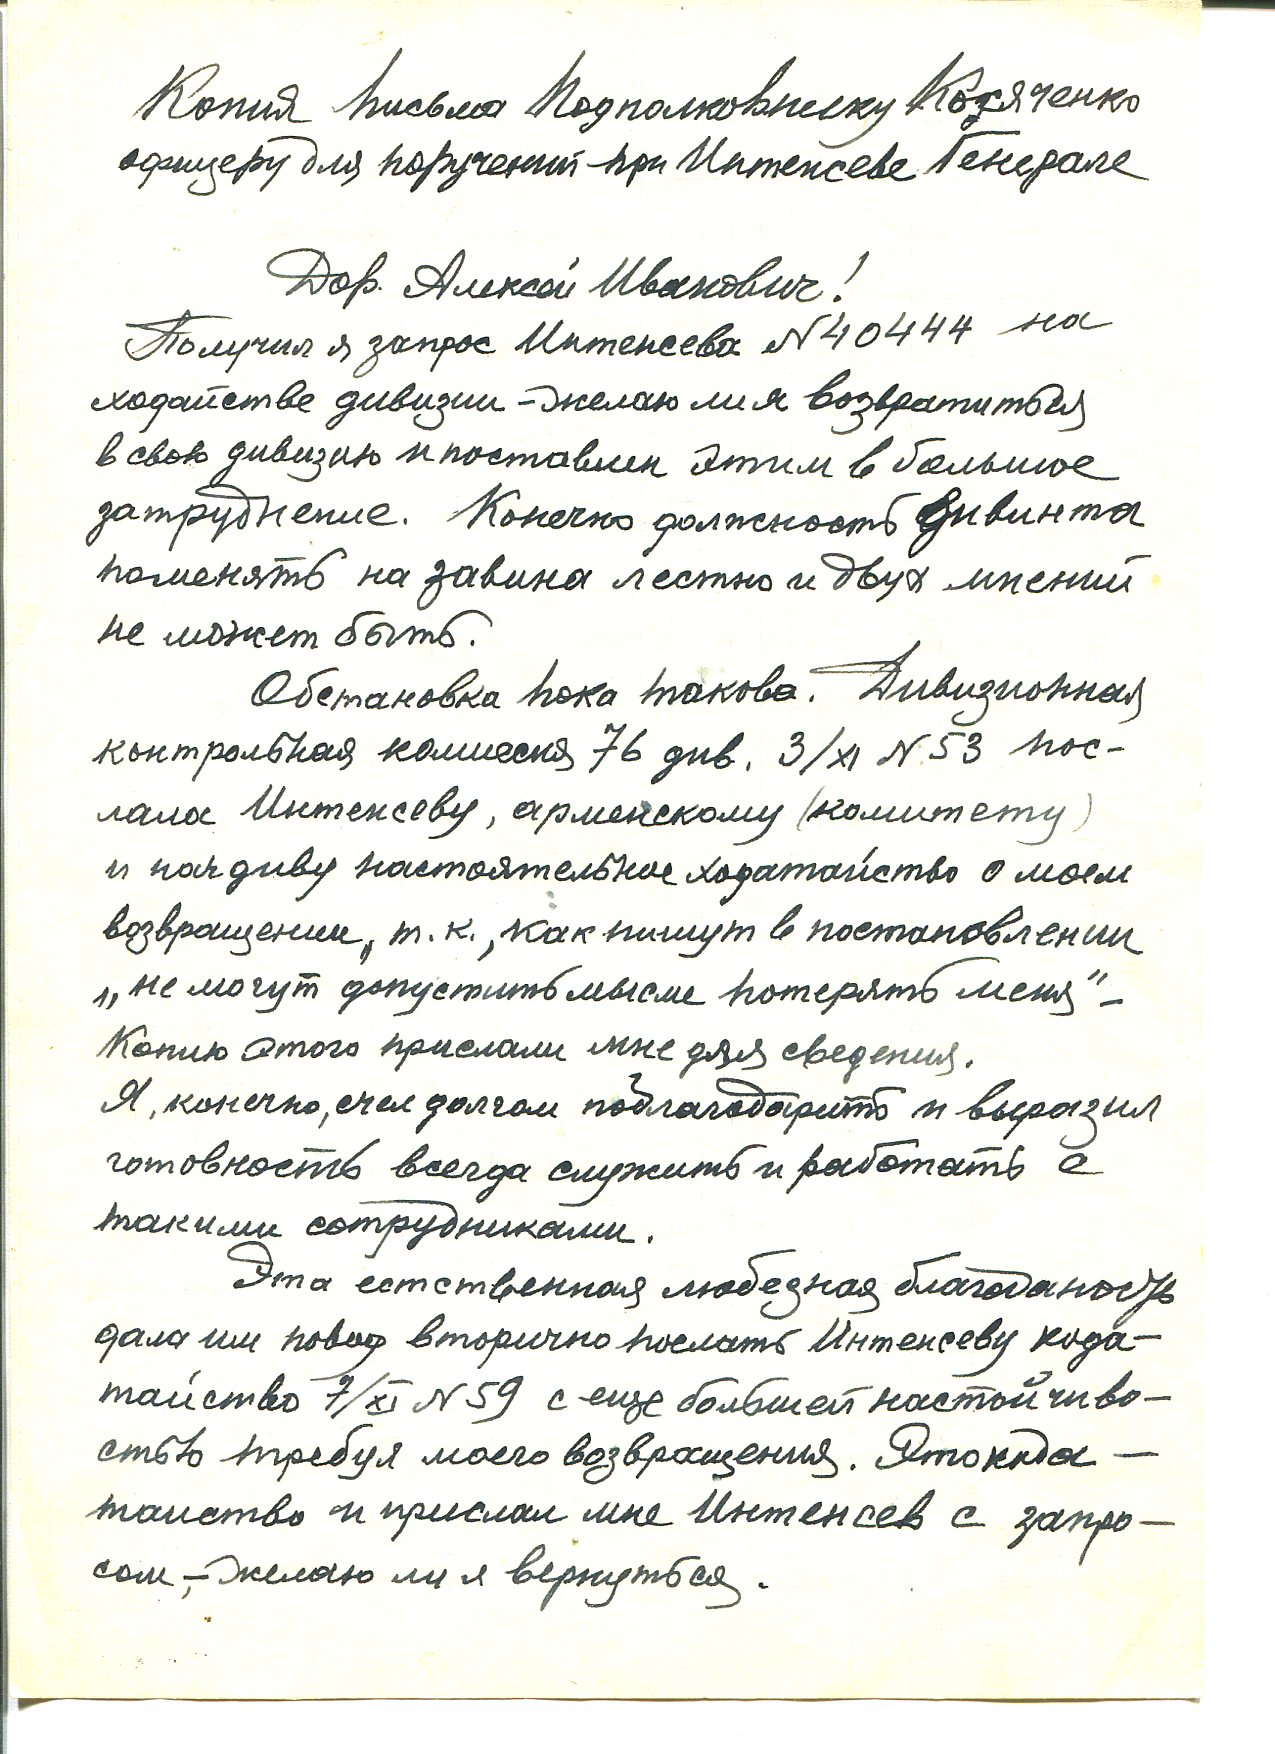 Копия письма Подполковнику Козяченко
офицеру для поручений при Интенсеве Генерале
Дор. Алексей Иванович!
Получил я запрос Интенсева N 40444 на
ходайстве дивизии – желаю ли я возвратиться
в свою дивизию и поставлен этим в большое
затруднение. Конечно должность дивинта
поменять на завина лестно и двух мнений
не может быть.
Обстановка пока такова. Дивизионная
контрольная комиссия 76 див. 3/XI N 53 пос-
лала Интенсеву, арменскому (комитету)
и начдиву настоятельное ходатайство о моем
возвращении, т.к., как пишут в постановлении
„не могут допустить мысли потерять меня" –
Копию этого прислали мне для сведения.
Я, конечно, счел долгом поблагодарить и выразил
готовность всегда служить и работать с
такими сотрудниками.
Эта естственная любезная
дала им повод вторично послать Интенсеву хода-
тайство 7/XI N 59 с еще большей настойчиво-
стью требуя моего возвращения. Это хода-
таиство и прислал мне Интенсев с запро-
сом, – желаю ли я вернуться.